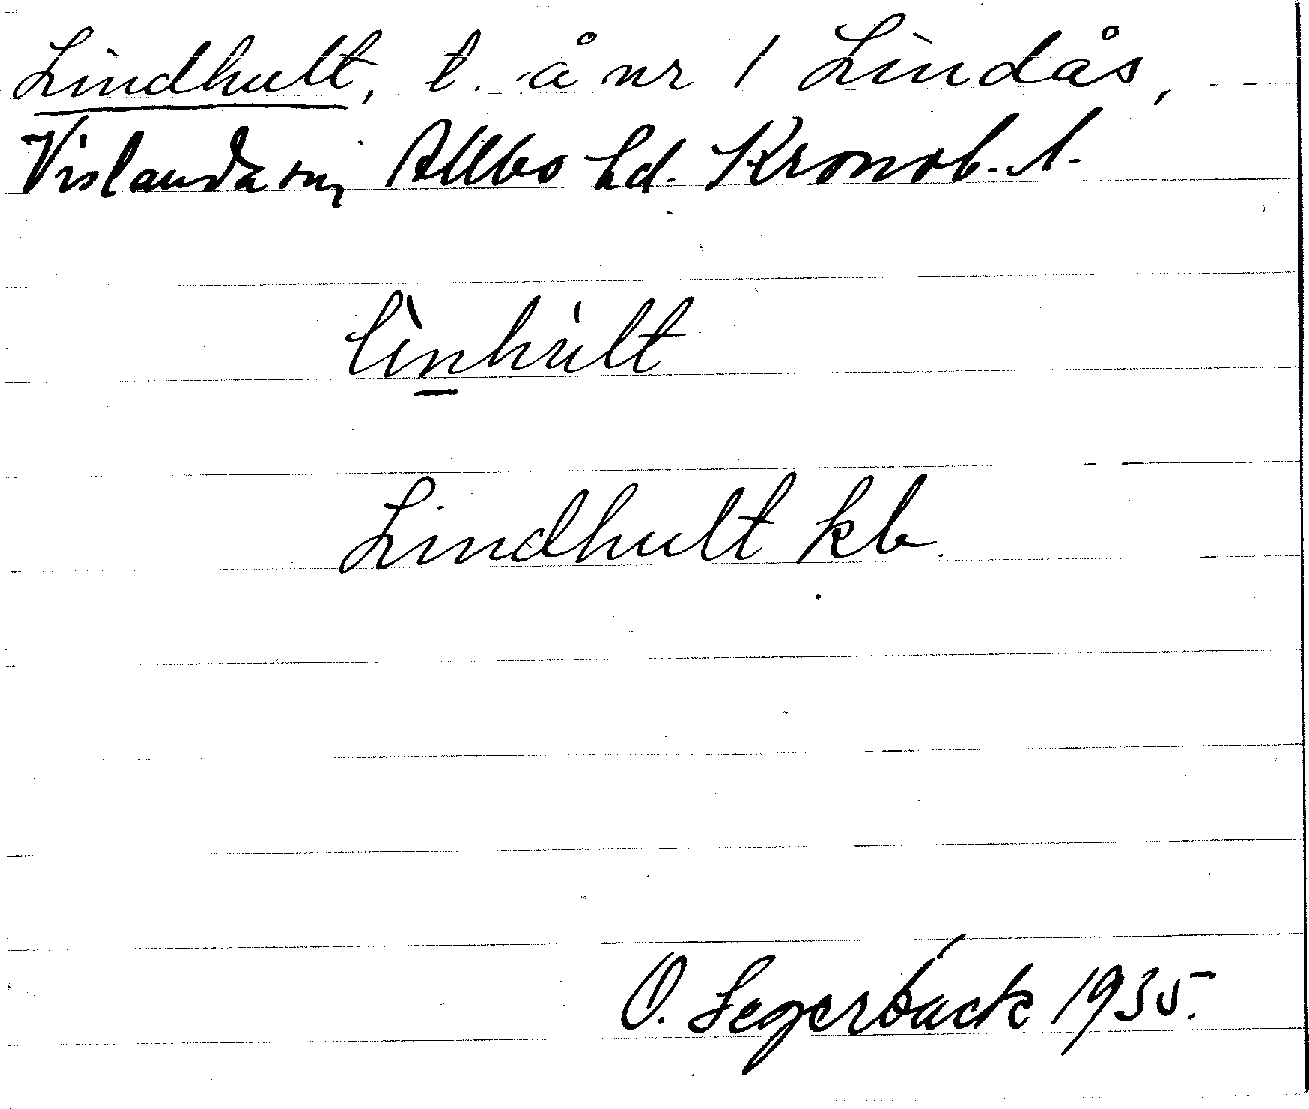 Lindhult, t. å nr 1 Lindås,
Vislanda sn, Allbo hd. Kronob. l.
lìnhùlt
Lindhult kb
O. Segerbäck 1935.